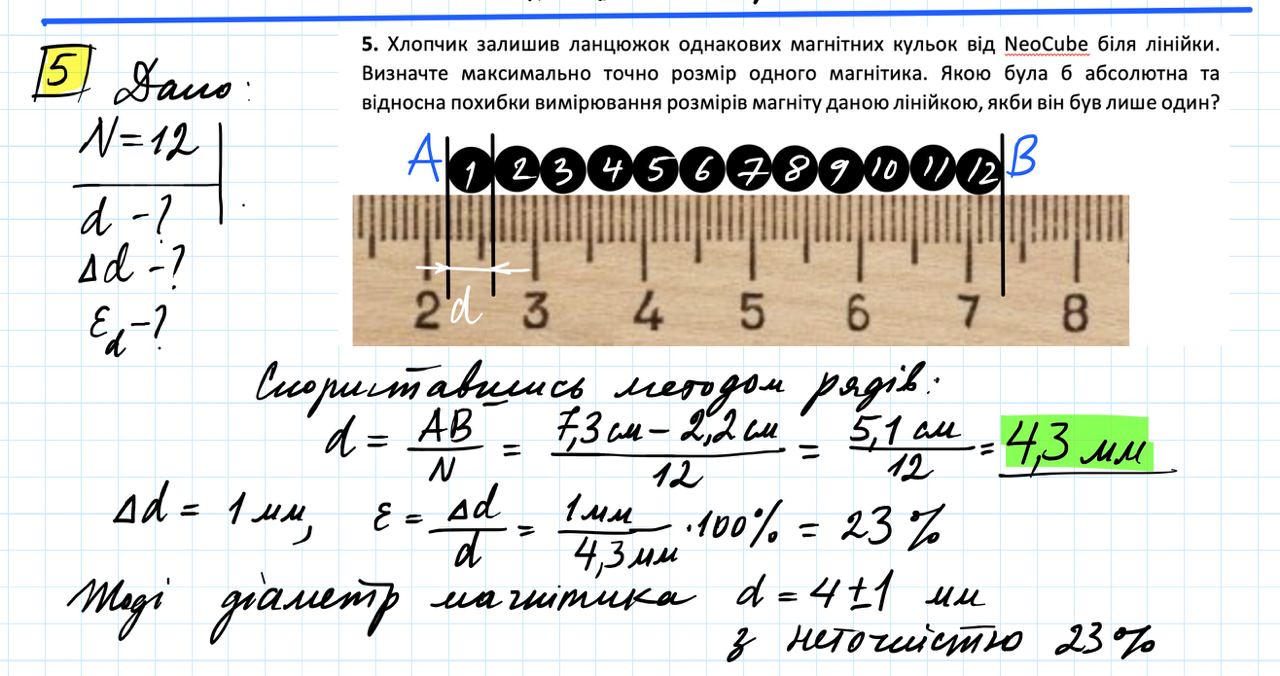 5. Хлопчик залишив ланцюжок однакових магнітних кульок від NeoCube біля лінійки.
Визначте максимально точно розмір одного магнітика. Якою була б абсолютна та
відносна похибки вимірювання розмірів магніту даною лінійкою, якби він був лише один?
5 Дано:
N=12
d -?
Δd -?
εd -?
A 1 2 3 4 5 6 7 8 9 10 11 12 B
d
2 3 4 5 6 7 8
Скориставшись методом рядів:
d = AB/N = (7,3 см - 2,2 см)/12 = 5,1 см/12 = 4,3 мм
Δd = 1 мм, ε = Δd/d = 1 мм/4,3 мм ·100% = 23 %
Тоді діаметр магнітика d = 4 ± 1 мм
з неточністю 23%